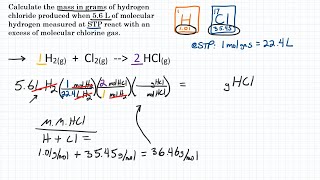 Calculate the mass in grams of hydrogen
chloride produced when 5.6 L of molecular
hydrogen measured at STP react with an
excess of molecular chlorine gas.
1 H 1.01
17 Cl 35.45
@STP: 1 mol gas = 22.4 L
→ 1 H2(g) + Cl2(g) → 2 HCl(g)
5.6 L H2 (1 mol H2 / 22.4 L H2) (2 mol HCl / 1 mol H2) ( g HCl / mol HCl) = g HCl
M.M. HCl
H + Cl =
1.01 g/mol + 35.45 g/mol = 36.46 g/mol